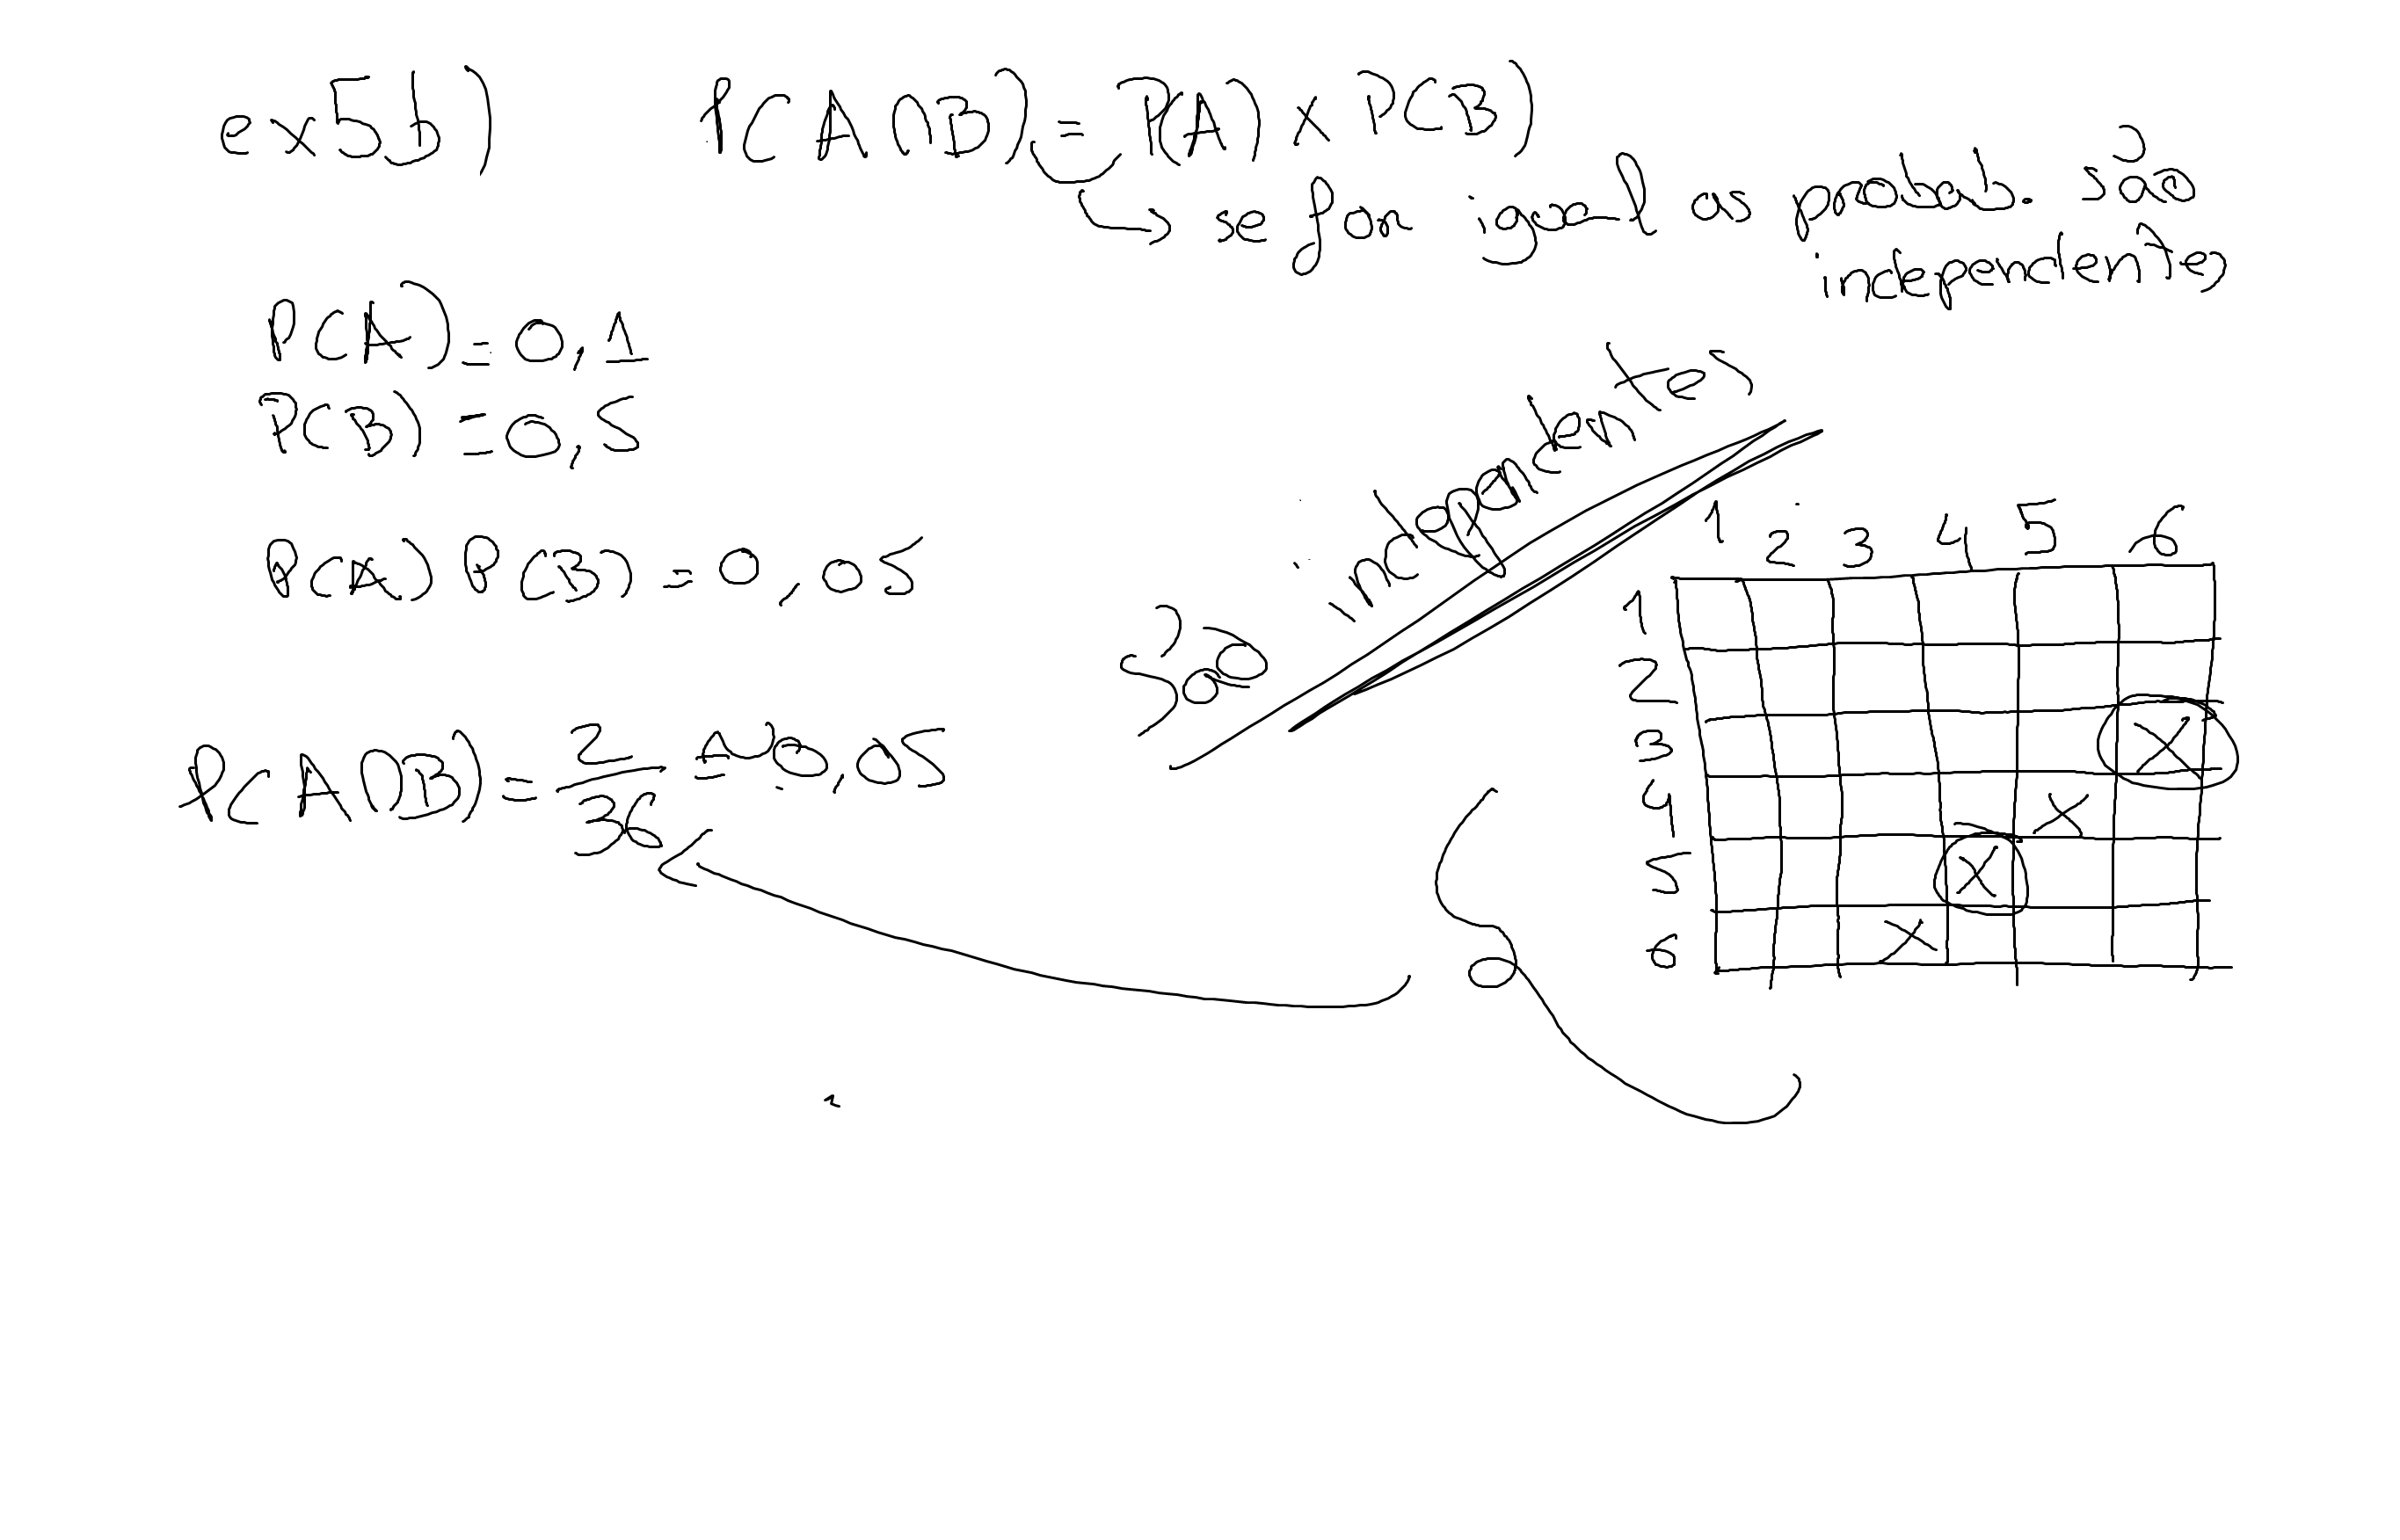 ex5b) P(A∩B) = P(A) x P(B)
se for igual as probab. são
independentes
P(A) = 0,1
P(B) = 0,5
P(A) P(B) = 0,05
são independentes
P(A∩B) = 2/36 ≃ 0,05
1 2 3 4 5 6
1
2
3 X
4 X
5 X
6 X